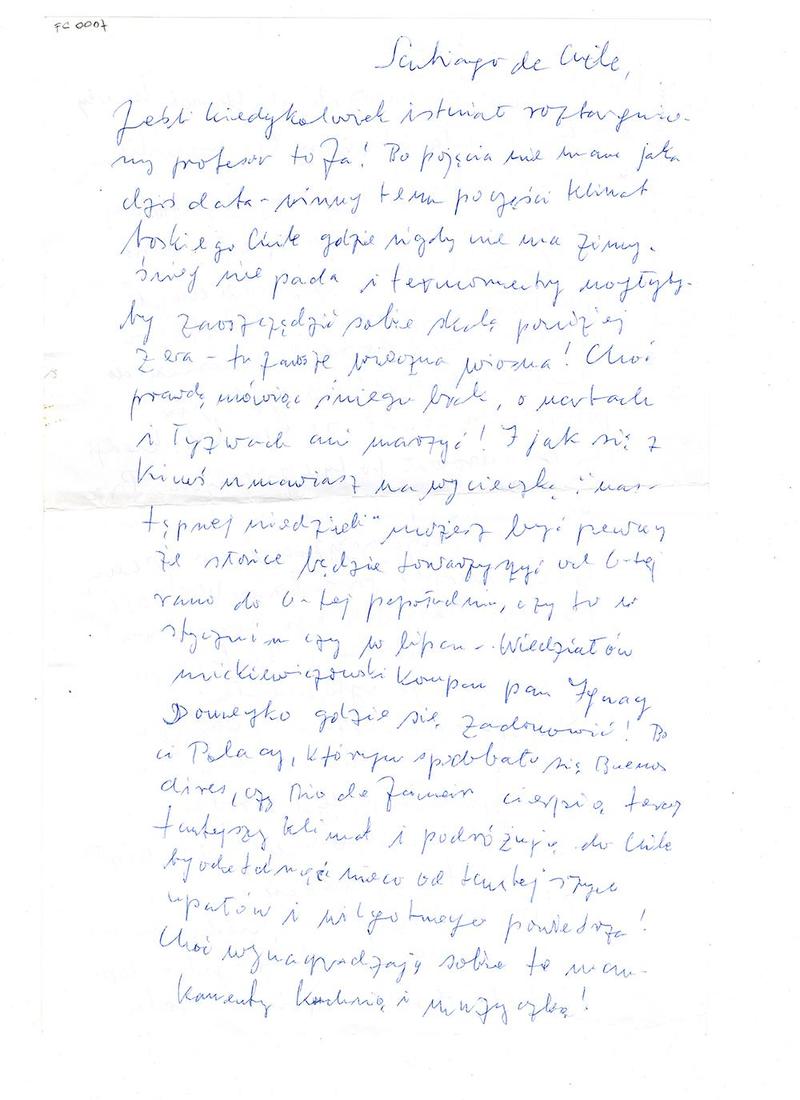 FC 0007
Santiago de Chile,
Jeśli kiedykolwiek istniał roztargnio-
ny profesor to Ja! Bo pojęcia nie mam jaka
dziś data - winny temu po części klimat
boskiego Chile gdzie nigdy nie ma zimy.
śnieg nie pada i termometry mogłyby-
by zaoszczędzić sobie skalę poniżej
zera - tu zawsze wieczna wiosna! Choć
prawdę mówiąc śniegu brak, o nartach
i łyżwach ani marzyć! I jak się z
kimś umawiasz na wycieczkę "nas-
tępnej niedzieli" możesz być pewny
że słońce będzie towarzyszyć od 6-tej
rano do 6-tej popołudniu, czy to w
styczniu czy w lipcu - Wiedział ów
mickiewiczowski kompan pan Ignacy
Domeyko gdzie się zadomowić! Bo
ci Polacy, którym spodobało się Buenos
Aires, czy Rio de Janeir cierpią teraz
tamtejszy klimat i podróżują do Chile
by odetchnąć nieco od tamtejszych
upałów i wilgotnego powietrza!
Choć wynagradzają sobie te man-
kamenty kuchnią i muzyczką!